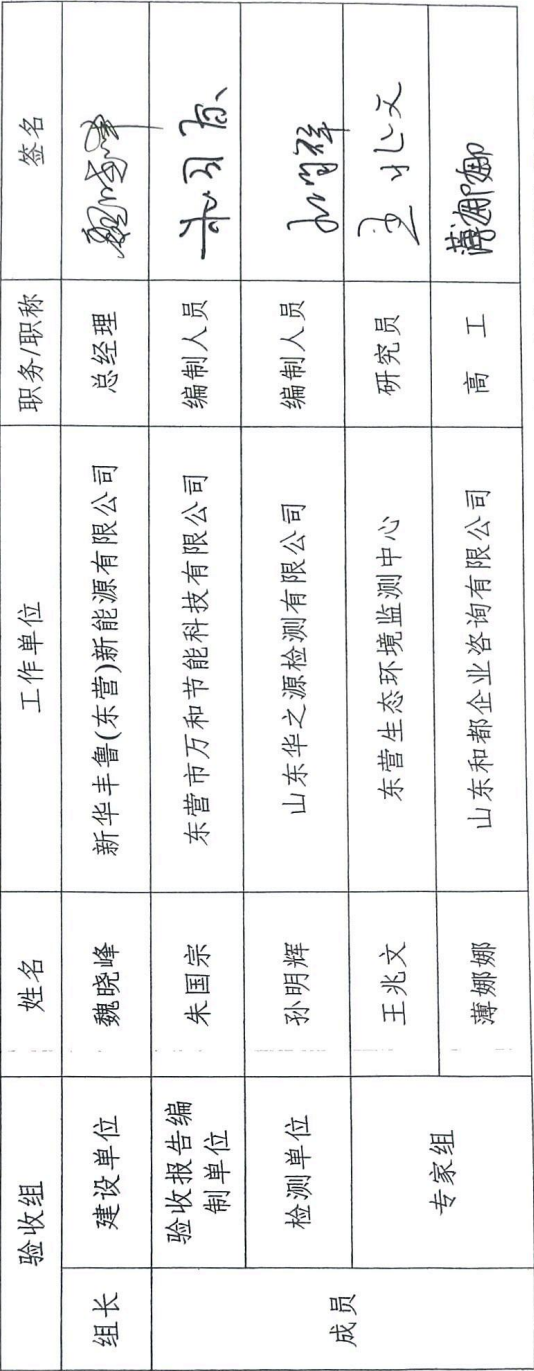 验收组 姓名 工作单位 职务/职称 签名
组长 建设单位 魏晓峰 新华丰鲁(东营)新能源有限公司 总经理 魏晓峰
成员 验收报告编 朱国宗 东营市万和节能科技有限公司 编制人员 朱国宗
制单位
检测单位 孙明辉 山东华之源检测有限公司 编制人员
专家组 王兆文 东营生态环境监测中心 研究员 王兆文
薄娜娜 山东和都企业咨询有限公司 高 工 薄娜娜